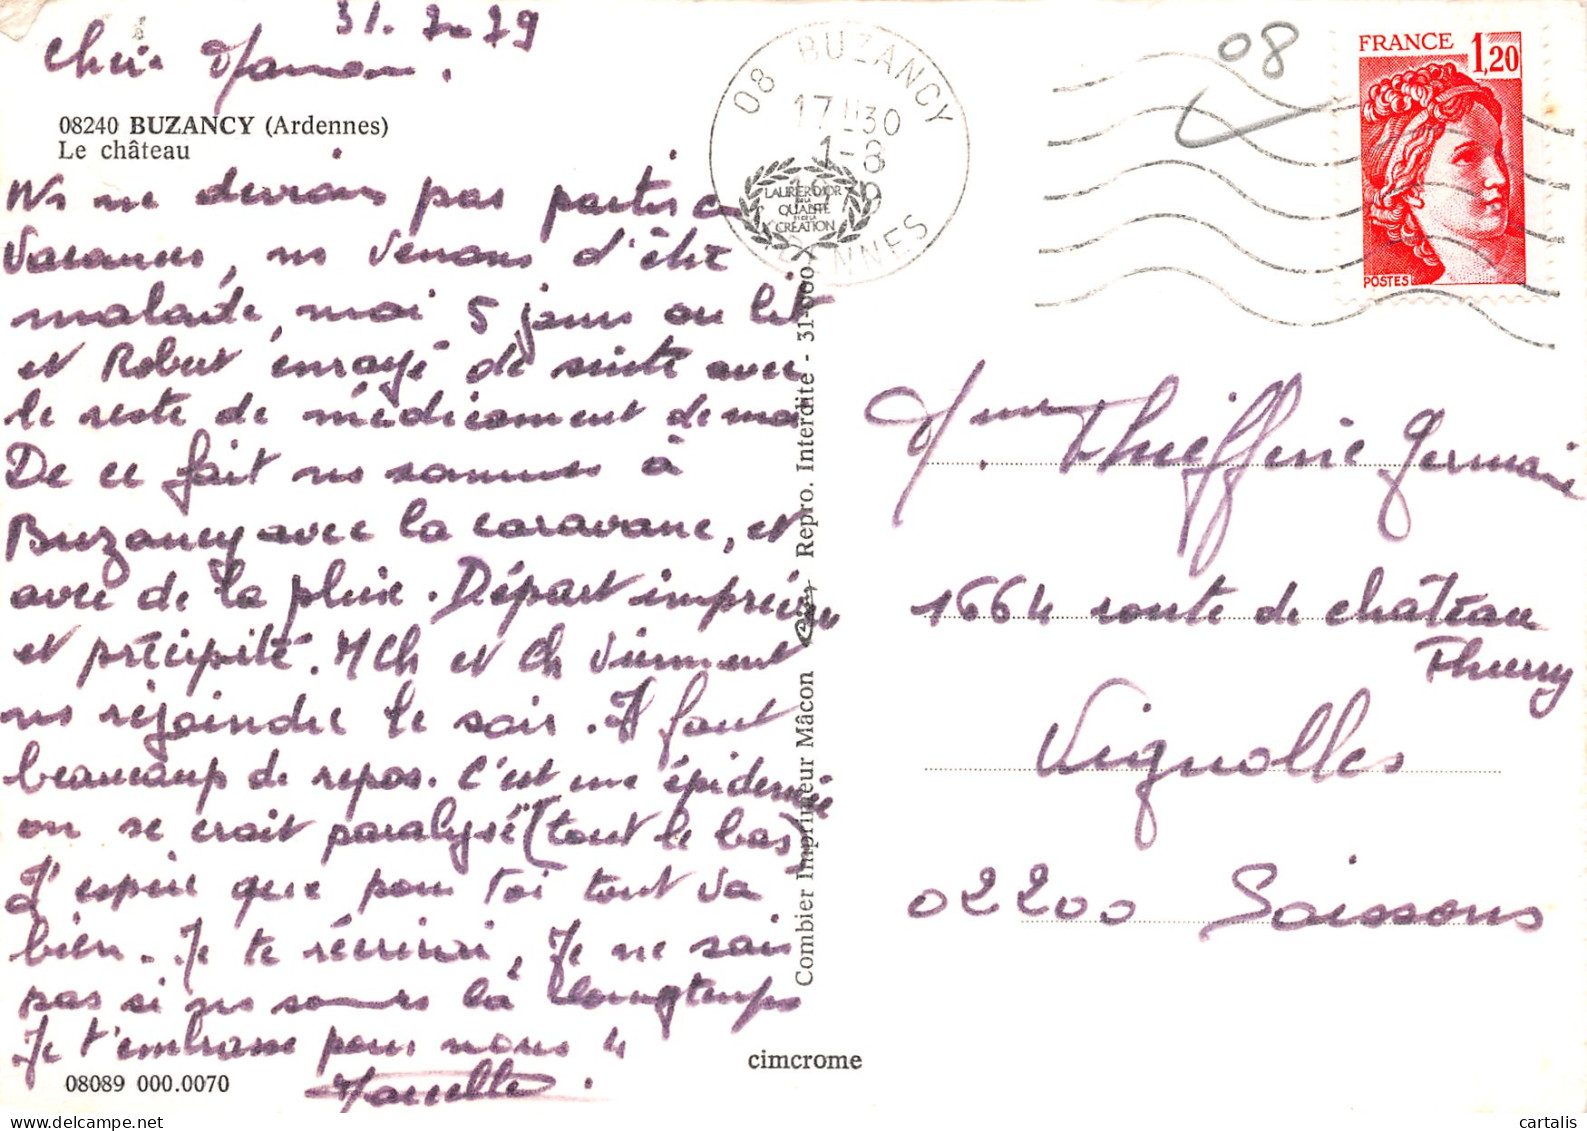 31.7.79
Chère Maman.
08240 BUZANCY (Ardennes)
Le château
Ns ne devrions pas partir en
vacances, ns venons d'être
malade, moi 5 jours au lit
et Robert enrayé de suite avec
le reste de médicament de moi
De ce fait ns sommes à
Buzancy avec la caravane, et
avec de la pluie. Départ imprévu
et précipité. MCh et Ch viennent
ns rejoindre le soir. Il faut
beaucoup de repos. C'est une épidémie
on se croit paralysé (tout le bas)
J'espère que pour toi tout va
bien. Je te récrirai, Je ne sais
pas si ns sommes là longtemps
Je t'embrasse pour nous 4
Marcelle.
08089 000.0070
08 BUZANCY
17H30
1-8
ARDENNES
LAURIER D'OR
DE LA
QUALITÉ
ET DE LA
CRÉATION
Combier Imprimeur Mâcon
Repro. Interdite - 31-000
cimcrome
08
FRANCE 1,20
POSTES
Mme Thiefferie Germaine
1664 route de château
Thierry
Vignolles
02200 Soissons
cartalis